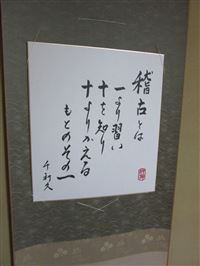 稽古とは
一より習い
十を知り
十よりかえる
もとのその一
千利久